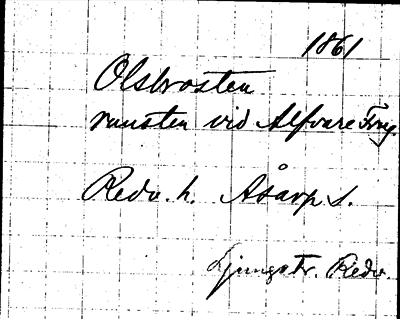 1861
Olsbrosten
runsten vid Alfvare
Redv. h. Åsarp s.
Ljungstr. Redv.